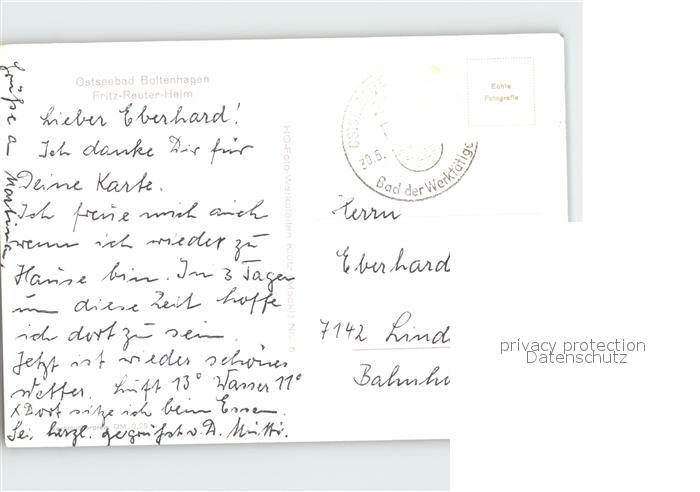 Ostseebad Boltenhagen
Fritz-Reuter-Heim
Lieber Eberhard!
Ich danke Dir für
Deine Karte.
Ich freue mich auch
wenn ich wieder zu
Hause bin. In 3 Tagen
um diese Zeit hoffe
ich dort zu sein.
Jetzt ist wieder schönes
Wetter. Luft 13° Wasser 11°
X Dort sitze ich beim Essen.
Sei herzl. gegrüßt v. D. Mutti.
Grüße a Martina,
HO-Foto-Werkstätten Klütz (Meckl) Nr. 5
30.5.
Bad der Werktätige
Echte
Fotografie
Herrn
Eberhard
7142 Lind
Bahnho
privacy protection
Datenschutz